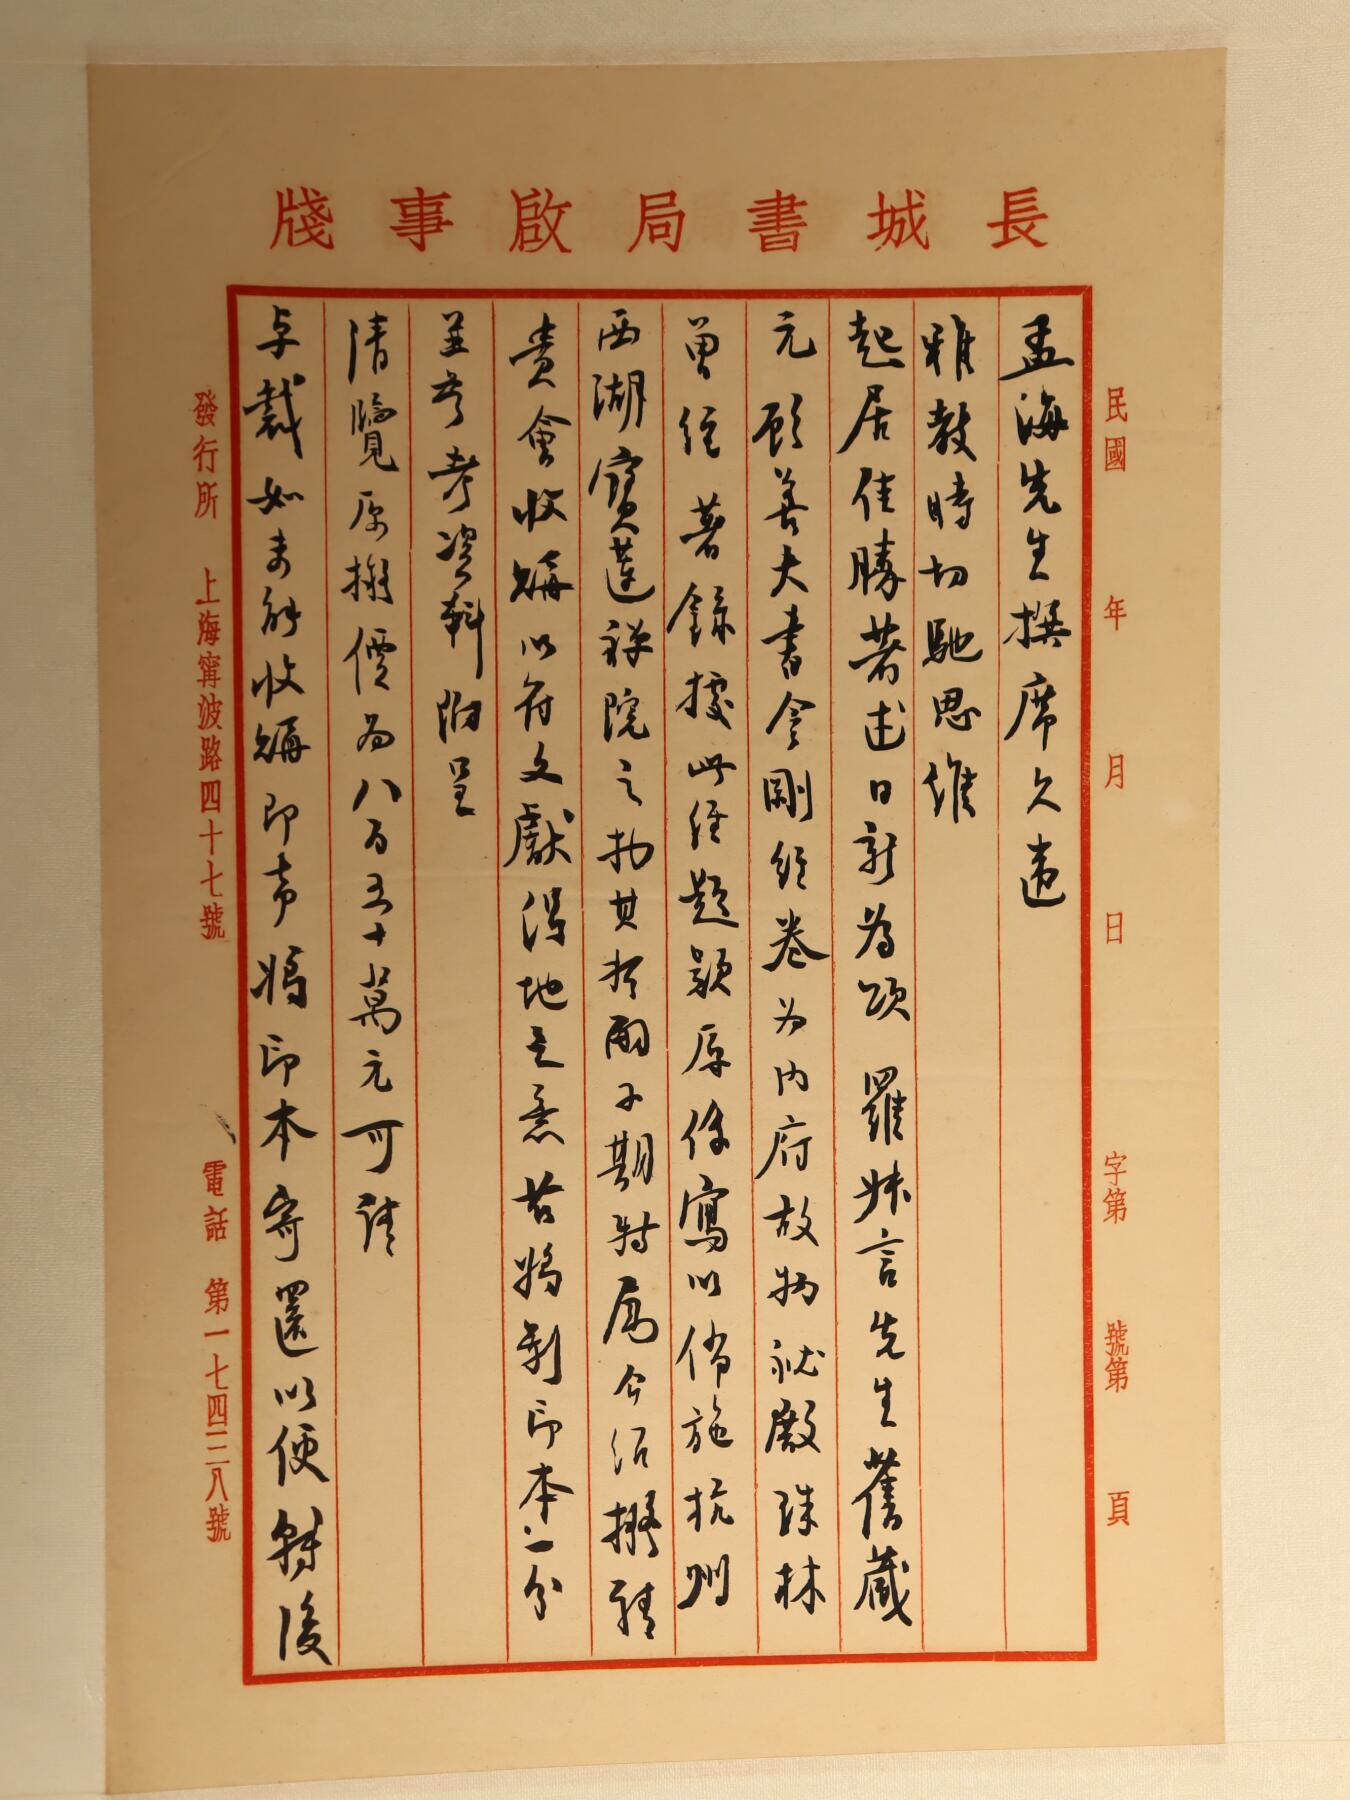 長城書局啟事牋
民國 年 月 日 字第 號第 頁
孟海先生撰席久違
雅教時切馳思維
起居佳勝著述日新為頌 羅妹言先生舊藏
元顧善夫書金剛經卷為內府故物祕殿珠林
曾經著錄據此經題款原係寫以佈施杭州
西湖寶蓮禪院之物其哲嗣子期特屬今紹撥請
貴會收購以符文獻得地之意茲將影印本一分
並考資料附呈
清覽原擬價為八百五十萬元可請
卓裁如未能收購即希將印本寄還以便轉復
發行所 上海甯波路四十七號 電話 第一七四三八號